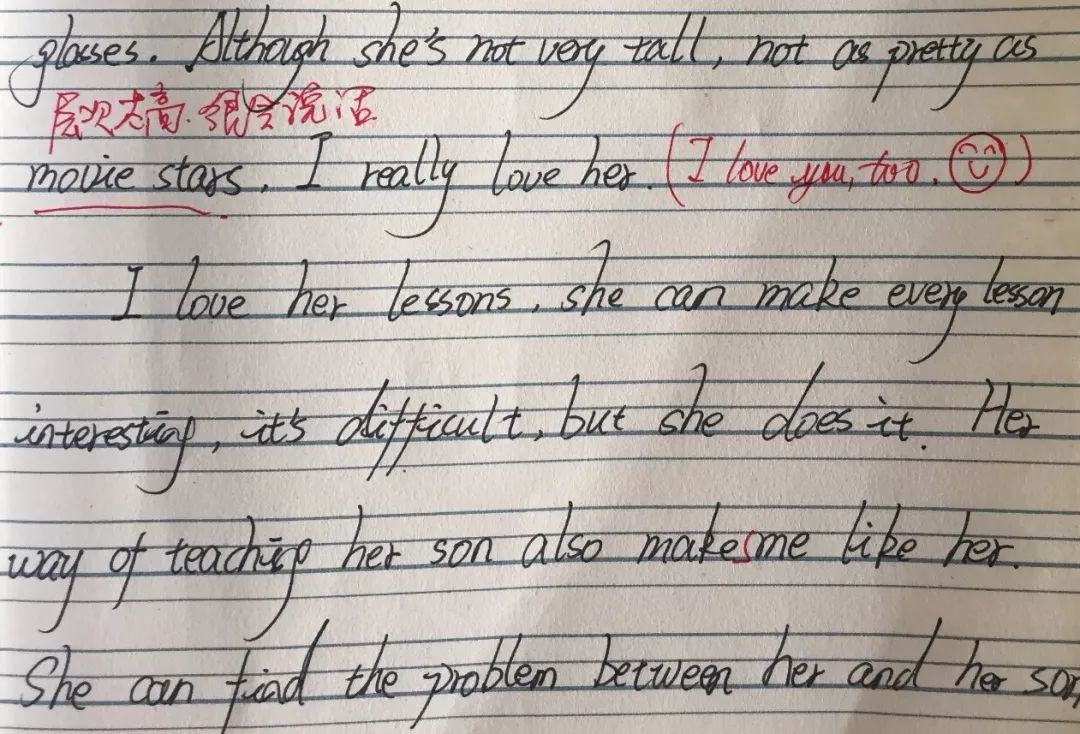 glasses. Although she's not very tall, not as pretty as
层次太高.很会说话
movie stars. I really love her. (I love you, too. )
I love her lessons, she can make every lesson
interesting, it's difficult, but she does it. Her
way of teaching her son also makes me like her.
She can find the problem between her and her son,